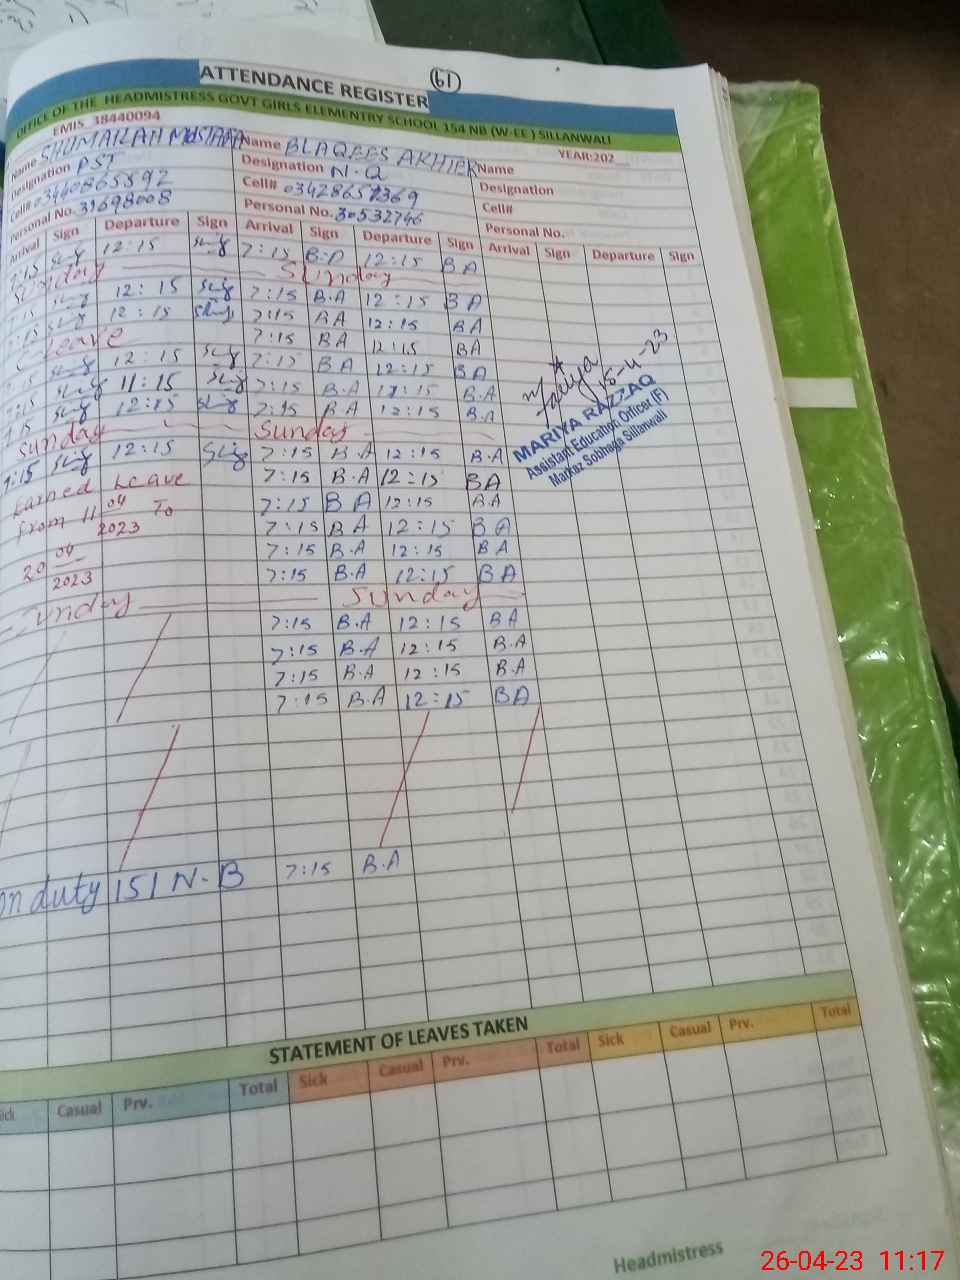 ATTENDANCE REGISTER
61
OFFICE OF THE HEADMISTRESS GOVT GIRLS ELEMENTRY SCHOOL 154 NB (W-EE) SILLANWALI
EMIS_38440094
YEAR:202__
Name SHUMAILAH MUSTAFA Name BLAQEES AKHTER Name
Designation PST Designation N-Q Designation
Cell# 03460865592 Cell# 03428657369 Cell#
Personal No. 31698008 Personal No. 30532746 Personal No.
Arrival Sign Departure Sign Arrival Sign Departure Sign Arrival Sign Departure Sign
7:15 12:15 7:15 B.A 12:15 BA
Sunday Sunday
7:15 12:15 7:15 B.A 12:15 BA
7:15 12:15 7:15 BA 12:15 BA
C-leave 7:15 BA 12:15 BA
7:15 12:15 7:15 BA 12:15 BA
7:15 11:15 7:15 B.A 11:15 B.A
7:15 12:15 7:15 BA 12:15 B.A
Sunday Sunday
7:15 12:15 7:15 B.A 12:15 B.A
Earned Leave 7:15 B.A 12:15 BA
From 11 04 2023 To 7:15 BA 12:15 BA
7:15 BA 12:15 BA
20 04 2023 7:15 B.A 12:15 BA
7:15 B.A 12:15 BA
Sunday Sunday
7:15 B.A 12:15 BA
7:15 B.A 12:15 B.A
7:15 B.A 12:15 B.A
7:15 B.A 12:15 BA
on duty 151 N-B 7:15 B.A
15-4-23
MARIYA RAZZAQ
Assistant Education Officer (F)
Markaz Sobhaga Sillanwali
STATEMENT OF LEAVES TAKEN
Sick Casual Prv. Total Sick Casual Prv. Total Sick Casual Prv. Total
Headmistress
26-04-23 11:17